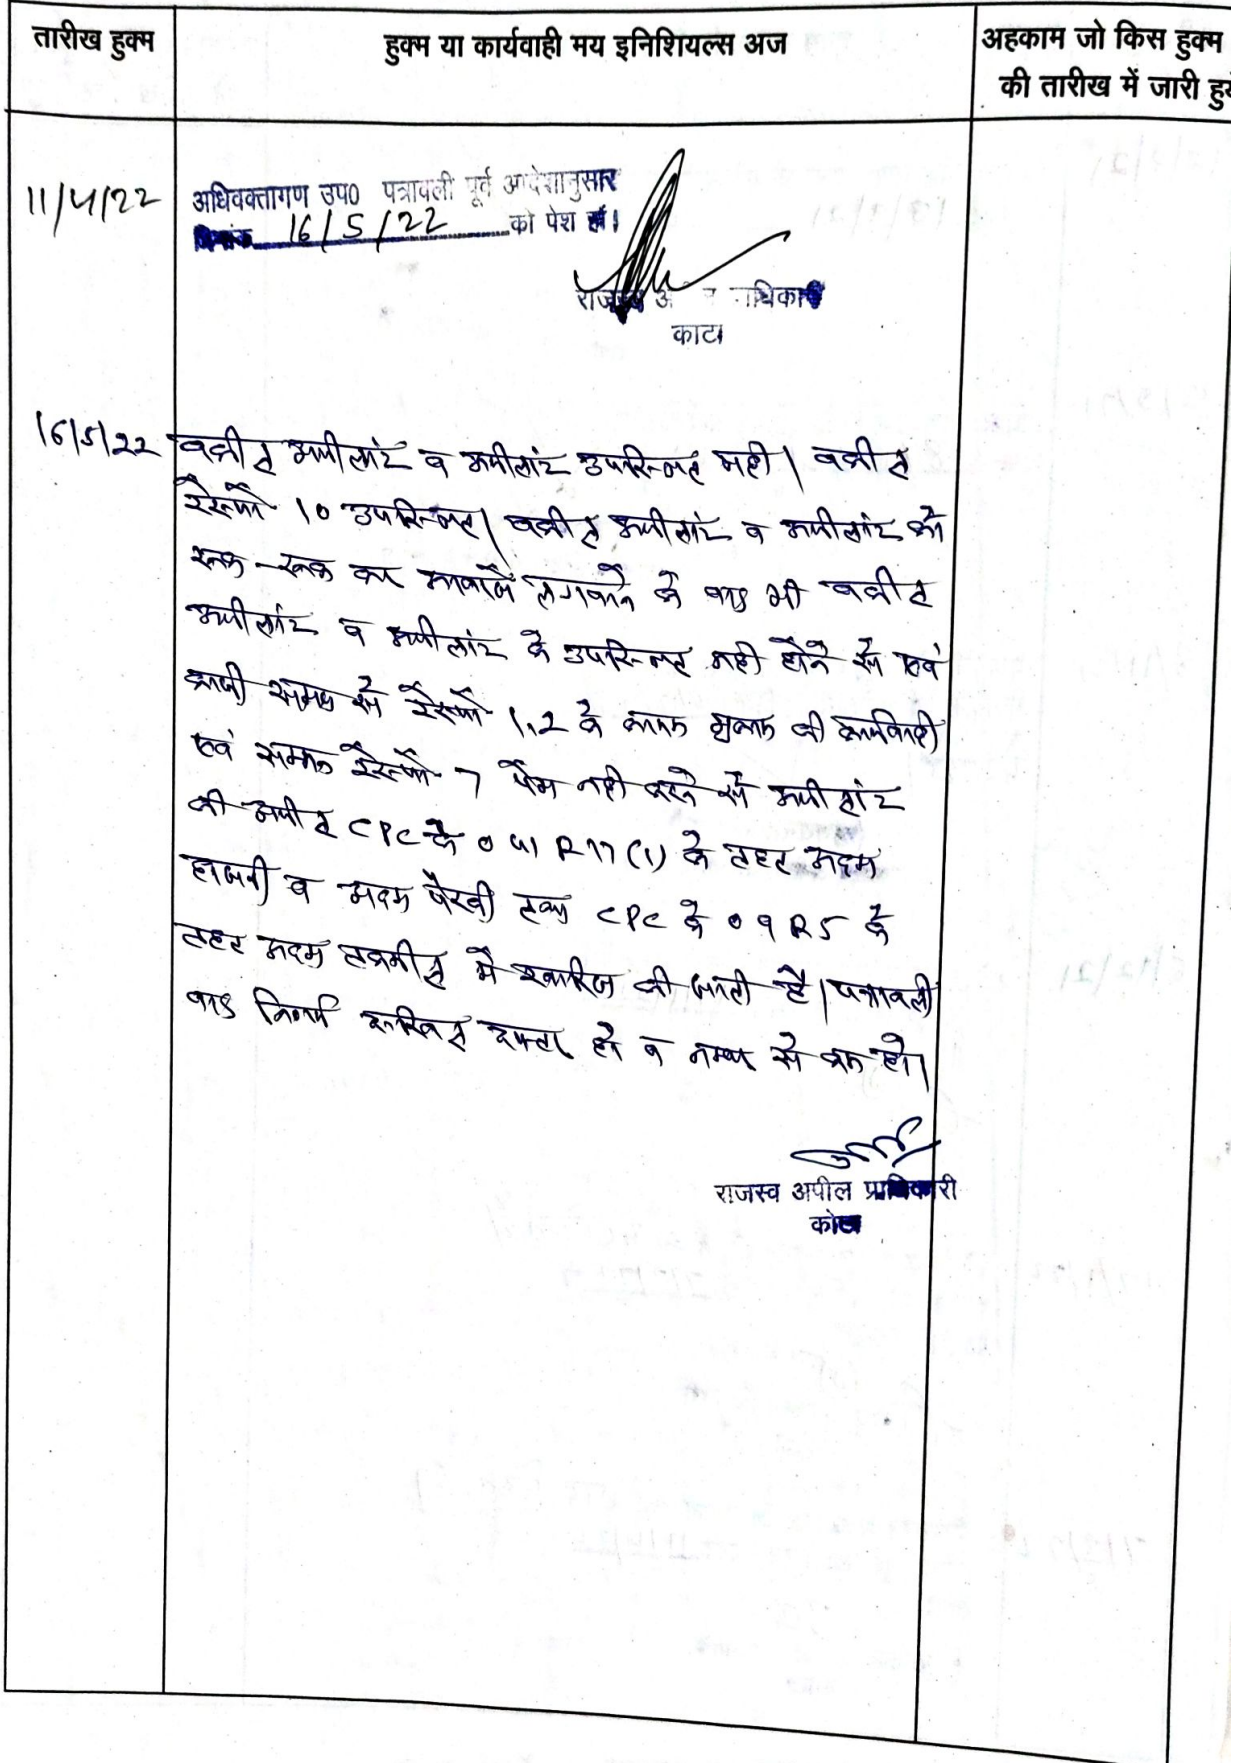 तारीख हुक्म
हुक्म या कार्यवाही मय इनिशियल्स अज
अहकाम जो किस हुक्म
की तारीख में जारी हुये
11/4/22
अधिवक्तागण उप0 पत्रावली पूर्व आदेशानुसार
दिनांक 16/5/22 को पेश हो।
राजस्व अ
काटा
16/5/22
वकील अपीलांट व अपीलांट उपस्थित नही। वकील
रैस्पो 10 उपस्थित। वकील अपीलांट व अपीलांट को
रूक-रूक कर आवाजें लगवाने के बाद भी वकील
अपीलांट व अपीलांट के उपस्थित नही होने से एवं
काफी समय से रैस्पो 1,2 के कायम मुकाम की कार्यवाही
एवं सम्मन रैस्पो 7 पेश नही करने से अपीलांट
की अपील CPC के O 41 R 17 (1) के तहत अदम
हाजरी व अदम पैरवी तथा CPC के O 9 R 5 के
तहत अदम तकमील मे खारिज की जाती है। पत्रावली
बाद निर्णय दाखिल दफ्तर हो व नम्बर से कम हो।
राजस्व अपील प्राधिकारी
कोटा